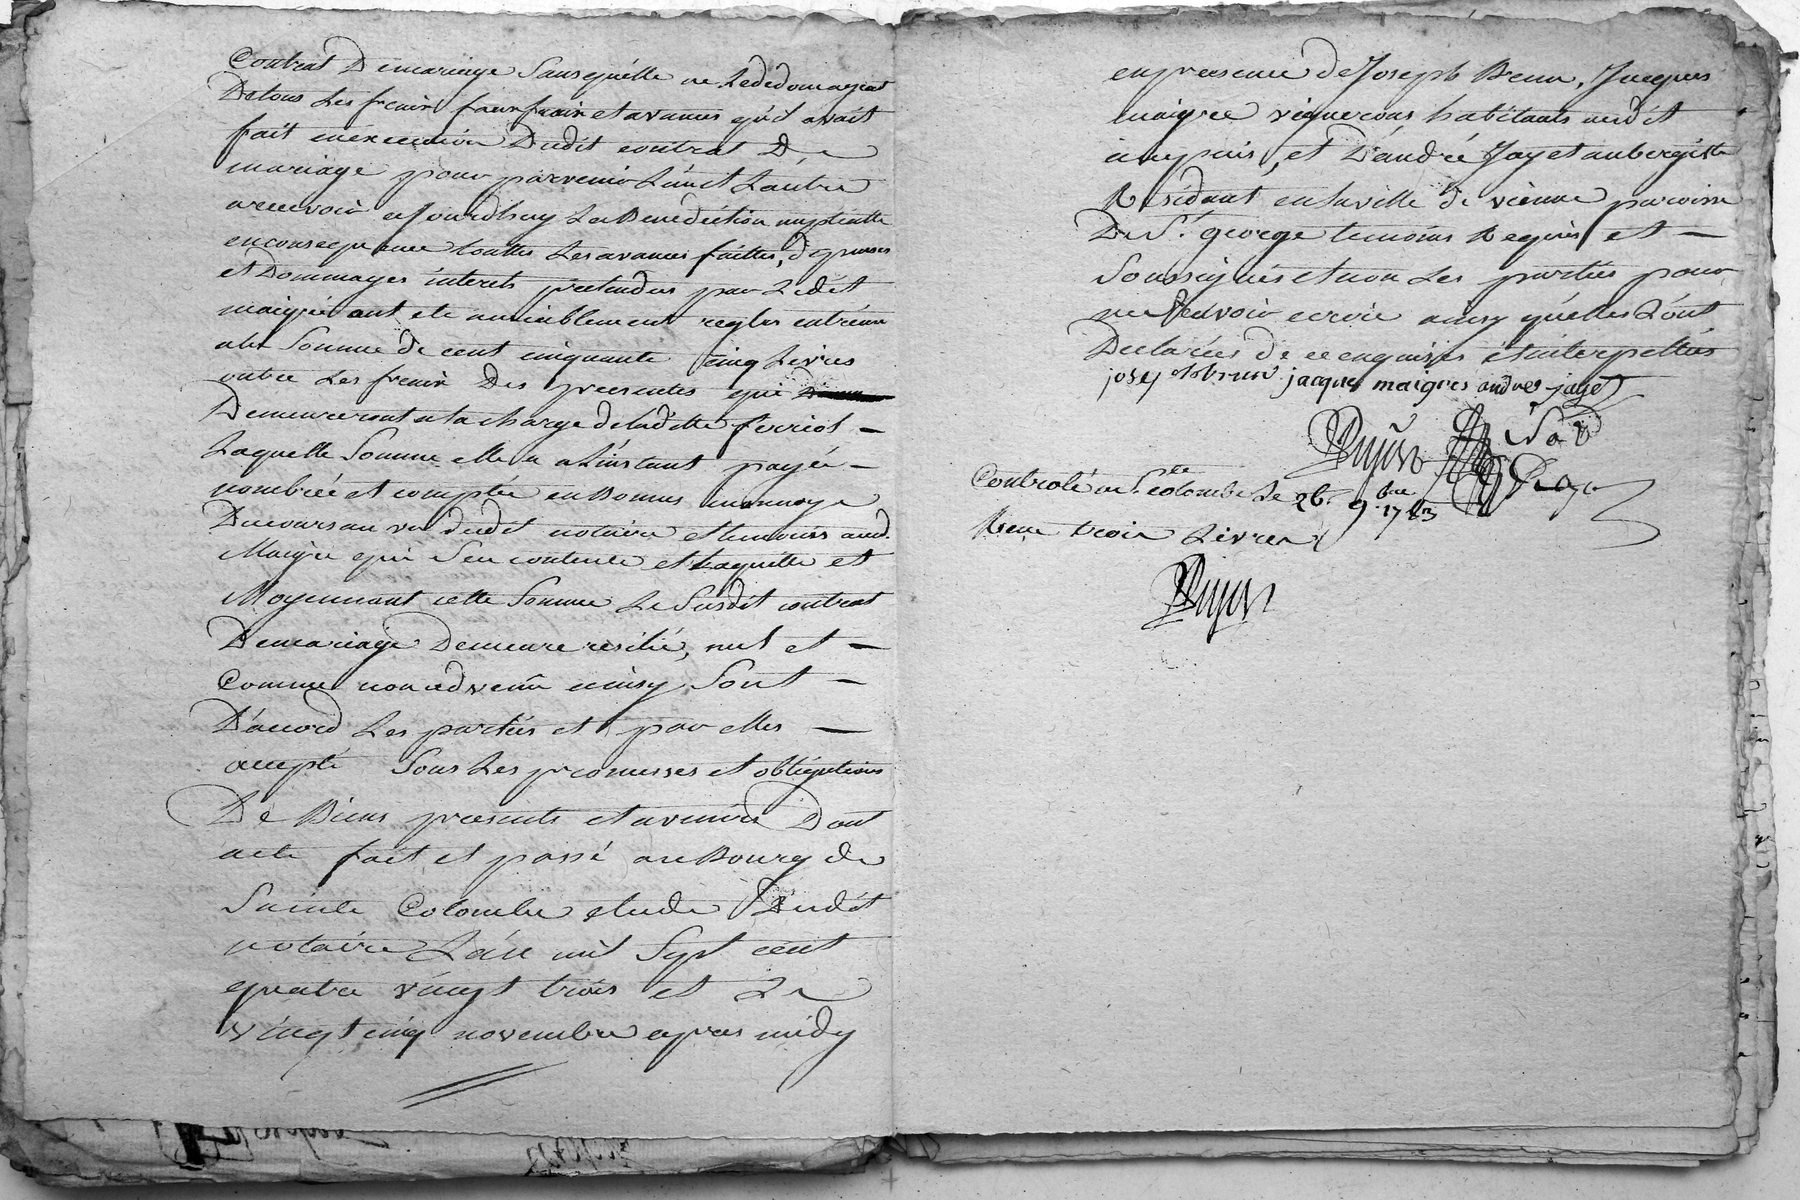 Contrat Demariage Sansquélle ne Lededomageat
Detous Les fraix fauxfraix et avances qu'il avoit
fait enéxecution Dudit contrat De
mariage pour parvenir Lún et Lautre
arecevoir ajourdhuy La Benédiction nuptialle
enconsequence touttes Lesavances faittes, dépenses
et Dommages interets pretendus par Ledit
maigre ont eté amiablement regles entréux
ala Somme de cent cinquante cinq Livres
outre Les fraix Des presentes qui
Demeureront ala charge deladitte ferriol —
Laquelle Somme elle a alinstant payée —
nombrée et comptée enBonne monnoye
Ducours au vu dudit notaire et temoins aud.
Maigre qui Sen contente et Laquitte et
Moyennant cette Somme Le Susdit contrat
Demariage Demeure resilié, nul et —
Comme non advenu ainsy Sont —
D'accord Les parties et par elles —
accepté Sous Les promesses et obligations
De Biens presents et avenirs Dont
acte fait et passé au Bourg de
Sainte Colombe etude Dudit
notaire Lán mil Sept cent
quatre vingt trois et Le
vingt cinq novembre apres midy
enpresence de Joseph Brun, Jacques
maigre vignerons habitants audit
ampuis, et D'andré Jayet aubergiste
Résidant enlaville de vienne paroisse
De St. george temoins Requis et —
Soussignés et non Les parties pour
ne Scavoir ecrire ainsy quélles Lónt
Declarées de ce enquises et interpellées
josept brun jacques maigres andres jayet
Dujour
Controlé a Ste colombe Le 26. 9.bre 1783
Reçu trois Livres
Dujour